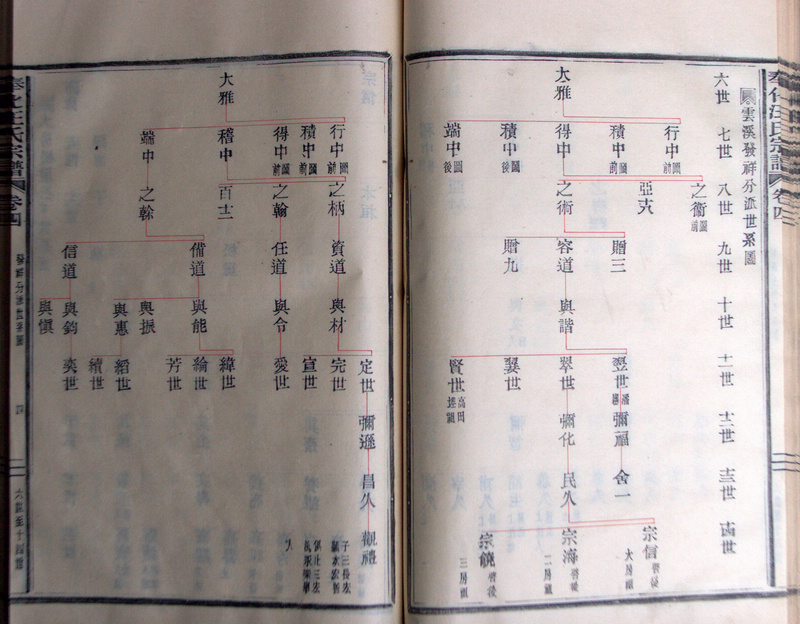 奉化汪氏宗譜 卷四
雲溪發祥分派世系圖
六世 七世 八世 九世 十世 十一世 十二世 十三世 十四世
大雅
行中 積中 得中 積中圖後 端中圖後
之衛圖前 亞夫 之術
贈三 容道 贈九
與諧
翌世 翠世 巽世 賢世
彌福 彌化
舍一 民久
宗信啓後大房祖
宗海啓後二房祖
宗饒啓後三房祖
大雅
行中圖前 積中圖前 得中圖前 稽中 端中
之柄 之翰 百十二 之榦
資道 任道 備道 信道
與材 與令 與能 與振 與惠 與鈞 與愼
定世 完世 宣世 愛世 緯世 綸世 芳世 紹世 績世 奕世
彌遜
昌久
觀禮
奉化汪氏宗譜 卷四
發祥分派世系圖
六世至十四世